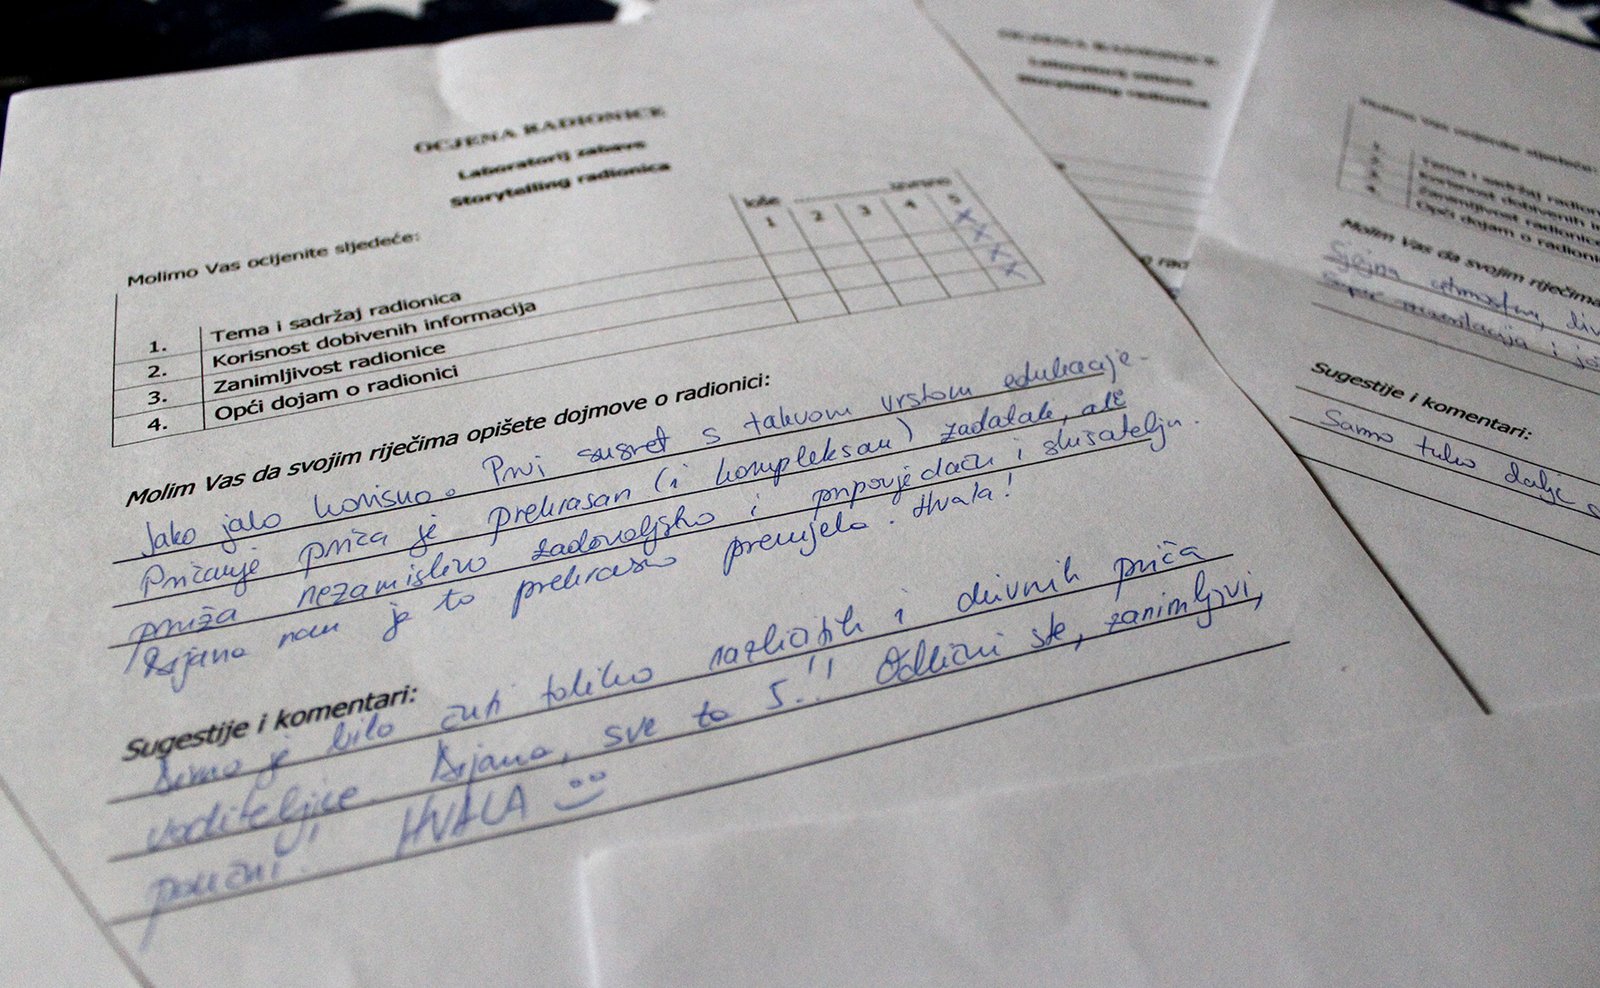 OCJENA RADIONICE
Laboratorij zabave
Storytelling radionica
Molimo Vas ocijenite sljedeće:
loše izvrsno
1 2 3 4 5
1. Tema i sadržaj radionica X
2. Korisnost dobivenih informacija X
3. Zanimljivost radionice X
4. Opći dojam o radionici X
Molim Vas da svojim riječima opišete dojmove o radionici:
Jako jako korisno. Prvi susret s takvom vrstom edukacije.
Pričanje priča je prekrasan (i kompleksan) zadatak, ali
pruža nezamislivo zadovoljstvo i pripovjedaču i slušatelju.
nam je to prekrasno prenijela. Hvala!
Sugestije i komentari:
Divno je bilo čuti toliko različitih i divnih priča
voditeljice. sve to 5!! Odlični ste, zanimljivi,
poučni. HVALA
OCJENA RADIONICE
Laboratorij zabave
Storytelling radionica
Molimo Vas ocijenite sljedeće:
1. Tema i sadržaj radion
2. Korisnost dobivenih in
3. Zanimljivost radionice
4. Opći dojam o radioni
Molim Vas da svojim riječima
Sjajna
super i
Sugestije i komentari:
Samo tako dalje